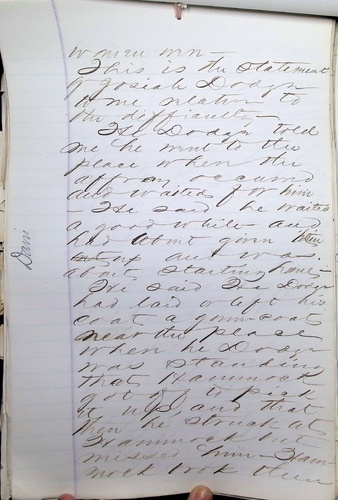 woman man —
This is the statement
of Josiah Dodgn
to me relation to
the difficulty —
He Dodgn told
me he went to the
place when the
affray occurred
and waited for him
— He said he waited
a good while and
had about given them
out and was
about starting home —
He said He Dodgn
had laid or left his
coat a gum coat
near the place
when he Dodgn
was standing
that Hammock
got off to pick
it up, and that
then he struck at
Hammock but
misses him — Ham-
mock took them
Davis